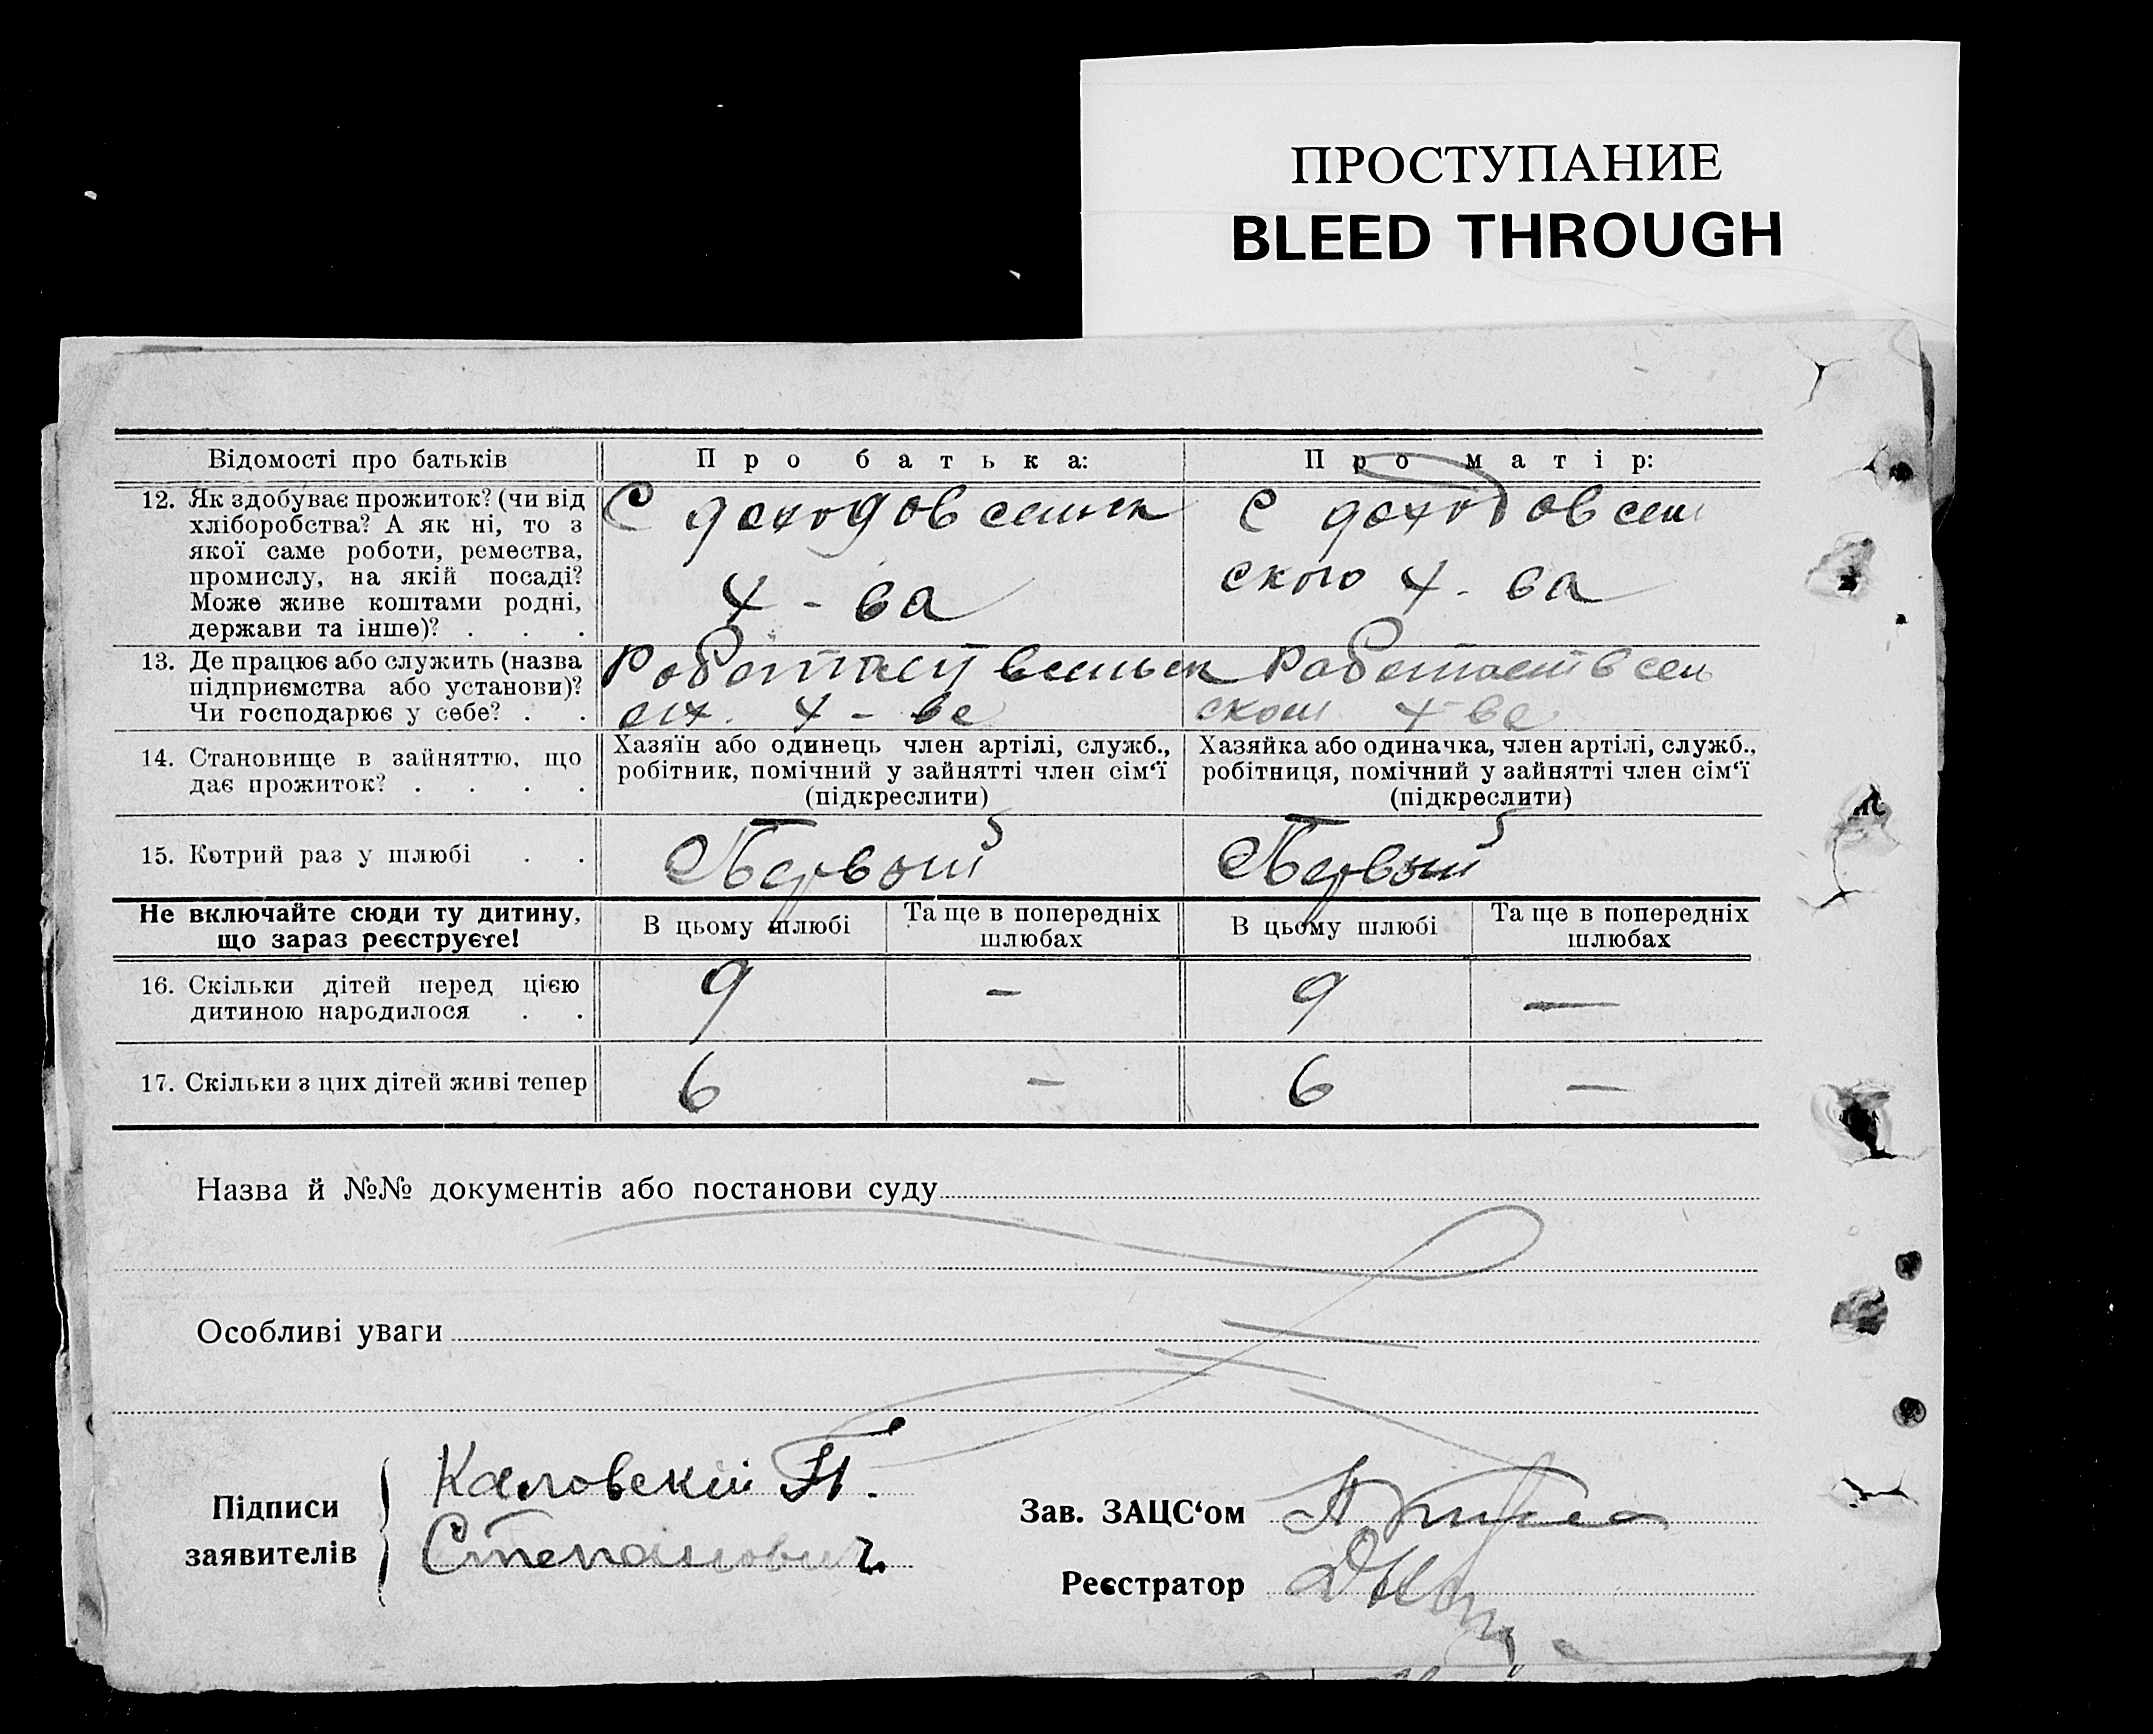 ПРОСТУПАНИЕ
BLEED THROUGH
Відомості про батьків
Про батька:
Про матір:
12. Як здобуває прожиток? (чи від
хліборобства? А як ні, то з
якої саме роботи, ремества,
промислу, на якій посаді?
Може живе коштами родні,
держави та інше)? . . .
С доходов сельск
х-ва
С доходов сель
ского х-ва
13. Де працює або служить (назва
підприємства або установи)?
Чи господарює у себе? . .
Работает в сельск
х-ве
Работает в сель
ском х-ве
14. Становище в зайняттю, що
дає прожиток? . . . .
Хазяїн або одинець член артілі, служб.,
робітник, помічний у зайнятті член сім‘ї
(підкреслити)
Хазяйка або одиначка, член артілі, служб.,
робітниця, помічний у зайнятті член сім‘ї
(підкреслити)
15. Котрий раз у шлюбі . .
Первый
Первый
Не включайте сюди ту дитину,
що зараз реєструєте!
В цьому шлюбі
Та ще в попередніх
шлюбах
В цьому шлюбі
Та ще в попередніх
шлюбах
16. Скільки дітей перед цією
дитиною народилося . .
9
-
9
—
17. Скільки з цих дітей живі тепер
6
—
6
—
Назва й №№ документів або постанови суду
Особливі уваги
Підписи
заявителів
Каловский П.
Степанович
Зав. ЗАЦС‘ом
Реєстратор